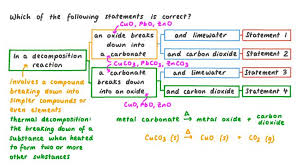 Which of the following statements is correct?
CuO, PbO, ZnO
In a decomposition reaction
an oxide breaks down into a carbonate
and limewater
Statement 1
and carbon dioxide
Statement 2
CuCO₃, PbCO₃, ZnCO₃
a carbonate breaks down into an oxide
and limewater
Statement 3
and carbon dioxide
Statement 4
CuO, PbO, ZnO
involves a compound
breaking down into
simpler compounds or
even elements
thermal decomposition:
the breaking down of a
substance when heated
to form two or more
other substances
metal carbonate →Δ metal oxide + carbon dioxide
CuCO₃ (s) →Δ CuO (s) + CO₂ (g)